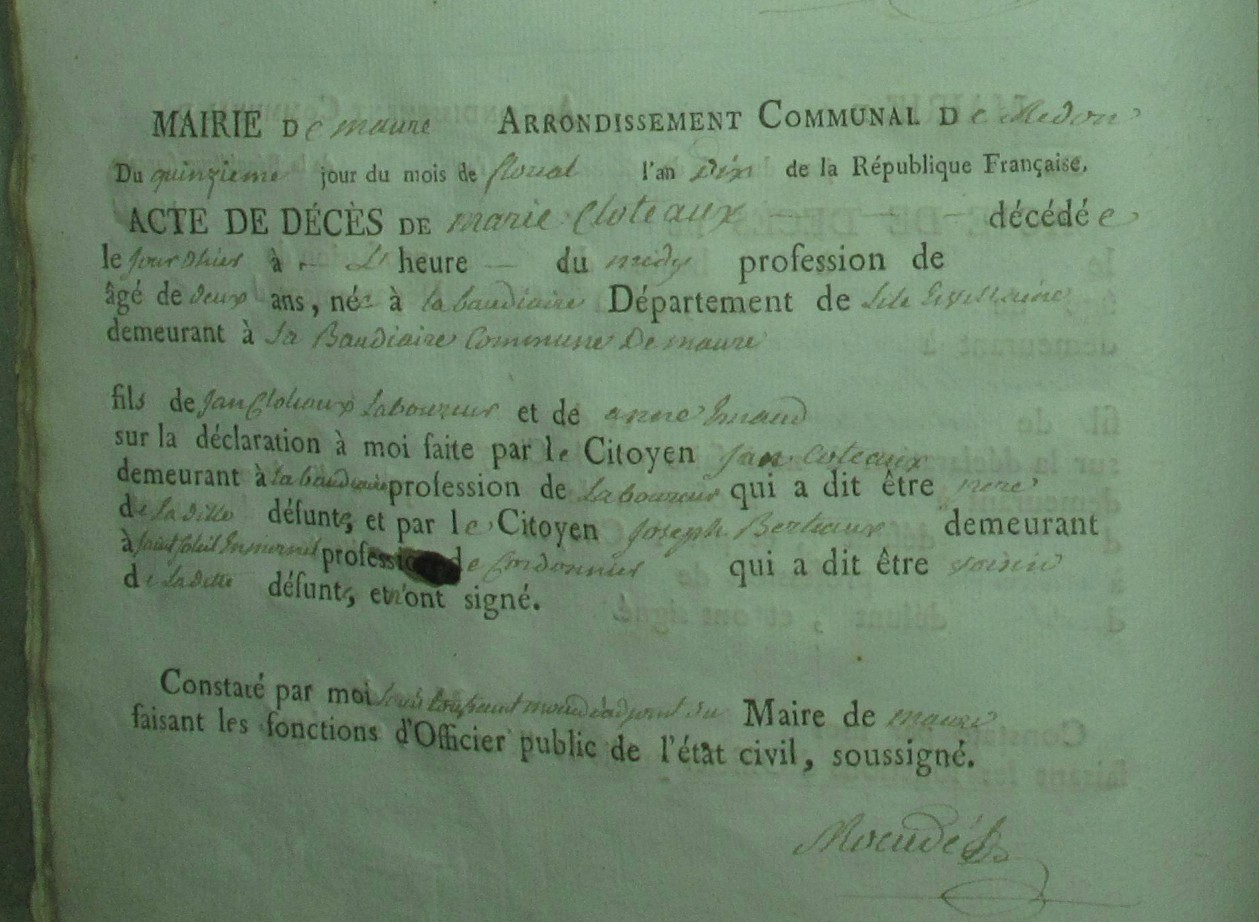 MAIRIE De maure ARRONDISSEMENT COMMUNAL De Redon
Du quinzieme jour du mois de floreal l'an Dix de la République Française,
ACTE DE DÉCÈS DE marie Cloteaux décédée
le jour dhier à heure du midy profession de
âgé de deux ans, née à la baudiaire Département de
demeurant à La Baudiaire Commune De maure
fils de Jan Laboureur et de anne
sur la déclaration à moi faite par le Citoyen Jan Coteaux
demeurant à la baudiaire profession de Laboureur qui a dit être pere
de La ditte défunte, et par le Citoyen Joseph Berteaux demeurant
à profession de Cordonnier qui a dit être voisin
de La ditte défunte, et n'ont signé.
Constaté par moi adjoint du Maire de maure
faisant les fonctions d'Officier public de l'état civil, soussigné.